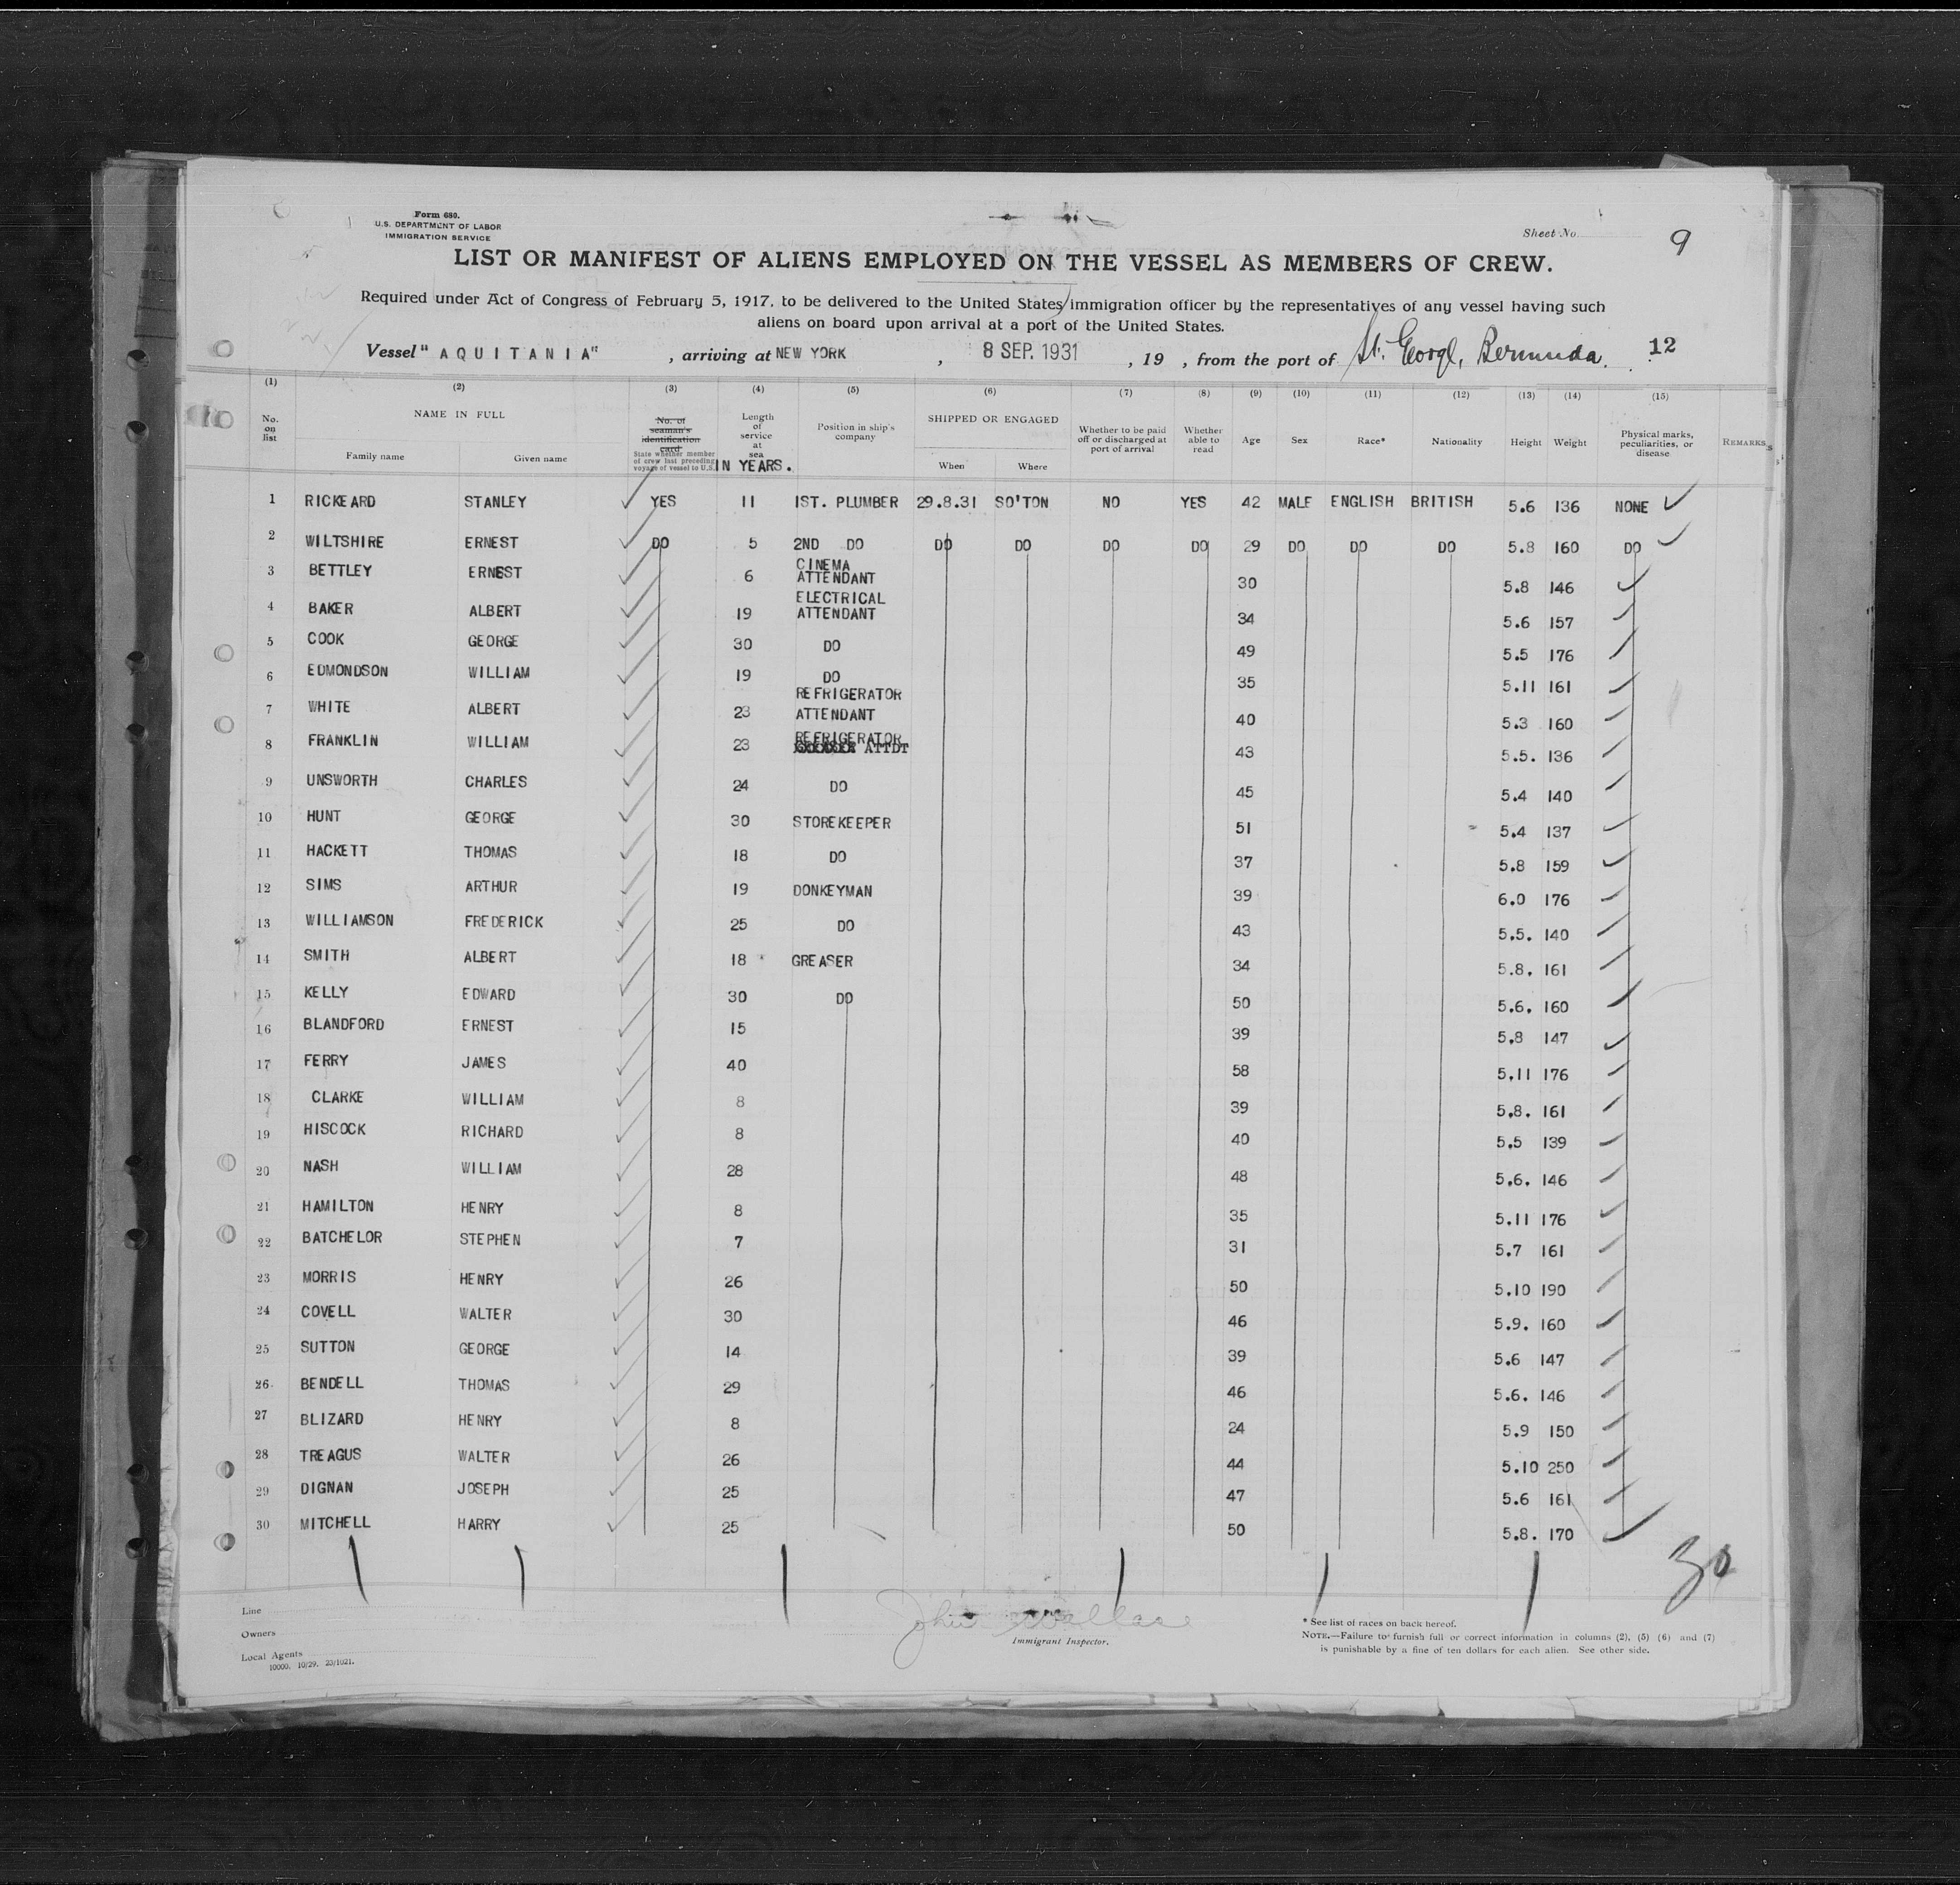 Form 680.
U.S. DEPARTMENT OF LABOR
IMMIGRATION SERVICE
Sheet No. 9
LIST OR MANIFEST OF ALIENS EMPLOYED ON THE VESSEL AS MEMBERS OF CREW.
Required under Act of Congress of February 5, 1917, to be delivered to the United States immigration officer by the representatives of any vessel having such
aliens on board upon arrival at a port of the United States.
Vessel "AQUITANIA" , arriving at NEW YORK , 8 SEP. 1931 , 19 , from the port of St. George, Bermuda. 12
(1) (2) (3) (4) (5) (6) (7) (8) (9) (10) (11) (12) (13) (14) (15)
No. on list NAME IN FULL Family name Given name No. of seaman's identification card State whether member of crew last preceding voyage of vessel to U.S. Length of service at sea IN YEARS. Position in ship's company SHIPPED OR ENGAGED When Where Whether to be paid off or discharged at port of arrival Whether able to read Age Sex Race* Nationality Height Weight Physical marks, peculiarities, or disease REMARKS
1 RICKEARD STANLEY YES 11 1ST. PLUMBER 29.8.31 SO'TON NO YES 42 MALE ENGLISH BRITISH 5.6 136 NONE
2 WILTSHIRE ERNEST DO 5 2ND DO DO DO DO DO 29 DO DO DO 5.8 160 DO
3 BETTLEY ERNEST 6 CINEMA ATTENDANT 30 5.8 146
4 BAKER ALBERT 19 ELECTRICAL ATTENDANT 34 5.6 157
5 COOK GEORGE 30 DO 49 5.5 176
6 EDMONDSON WILLIAM 19 DO 35 5.11 161
7 WHITE ALBERT 23 REFRIGERATOR ATTENDANT 40 5.3 160
8 FRANKLIN WILLIAM 23 REFRIGERATOR GREASER ATTDT 43 5.5. 136
9 UNSWORTH CHARLES 24 DO 45 5.4 140
10 HUNT GEORGE 30 STOREKEEPER 51 5.4 137
11 HACKETT THOMAS 18 DO 37 5.8 159
12 SIMS ARTHUR 19 DONKEYMAN 39 6.0 176
13 WILLIAMSON FREDERICK 25 DO 43 5.5. 140
14 SMITH ALBERT 18 GREASER 34 5.8. 161
15 KELLY EDWARD 30 DO 50 5.6. 160
16 BLANDFORD ERNEST 15 39 5.8 147
17 FERRY JAMES 40 58 5.11 176
18 CLARKE WILLIAM 8 39 5.8. 161
19 HISCOCK RICHARD 8 40 5.5 139
20 NASH WILLIAM 28 48 5.6. 146
21 HAMILTON HENRY 8 35 5.11 176
22 BATCHELOR STEPHEN 7 31 5.7 161
23 MORRIS HENRY 26 50 5.10 190
24 COVELL WALTER 30 46 5.9. 160
25 SUTTON GEORGE 14 39 5.6 147
26 BENDELL THOMAS 29 46 5.6. 146
27 BLIZARD HENRY 8 24 5.9 150
28 TREAGUS WALTER 26 44 5.10 250
29 DIGNAN JOSEPH 25 47 5.6 161
30 MITCHELL HARRY 25 50 5.8. 170
30
Line
Owners
Local Agents
10000. 10/29. 23/1021.
John Wallace
Immigrant Inspector.
* See list of races on back hereof.
NOTE.—Failure to furnish full or correct information in columns (2), (5) (6) and (7)
is punishable by a fine of ten dollars for each alien. See other side.